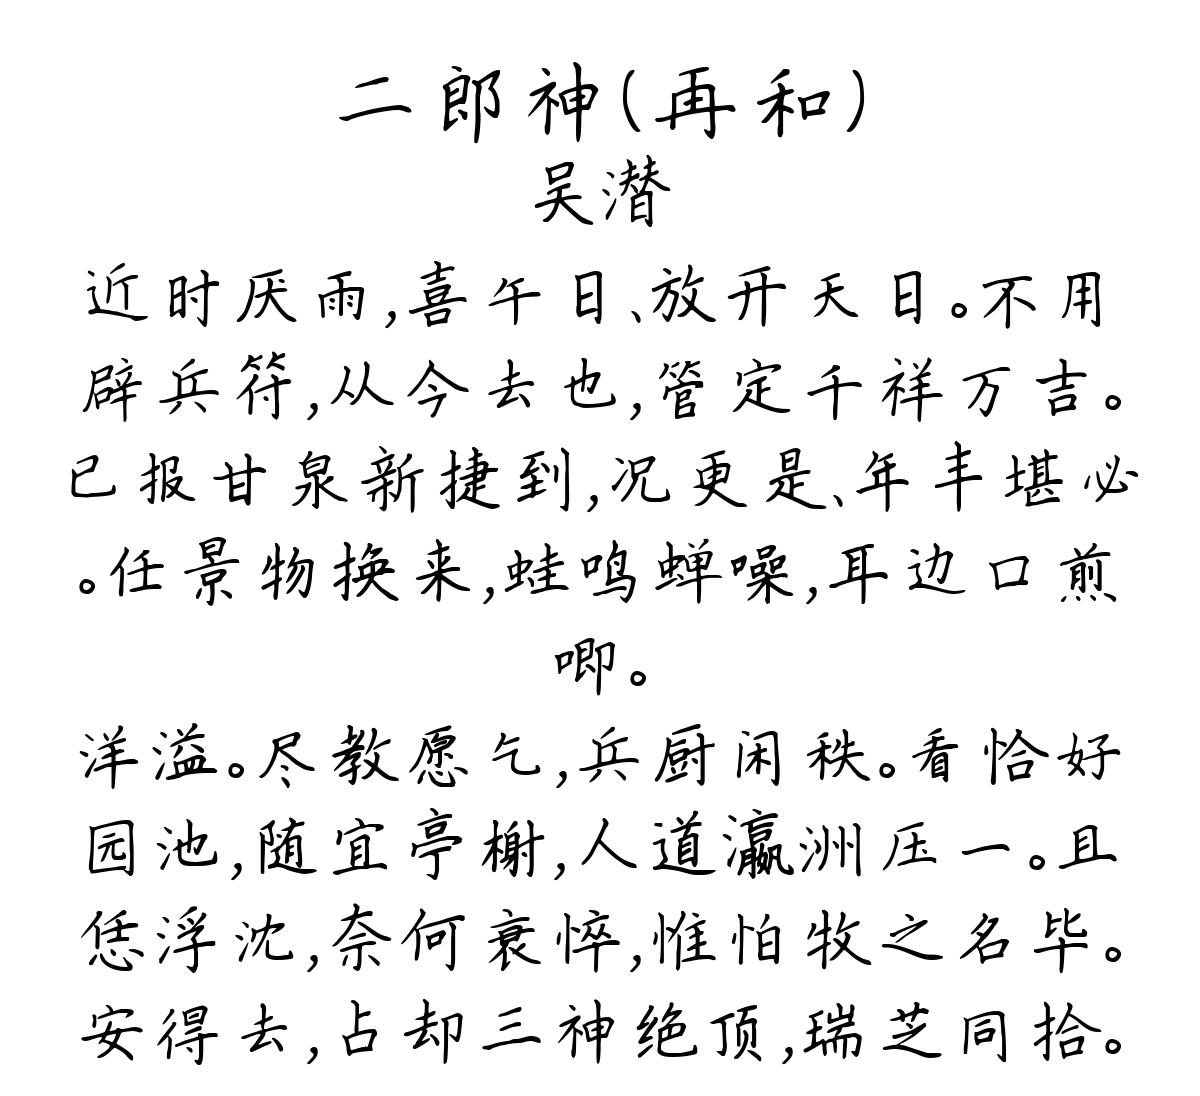 二郎神(再和)
吴潜
近时厌雨,喜午日、放开天日。不用
辟兵符,从今去也,管定千祥万吉。
已报甘泉新捷到,况更是、年丰堪必
。任景物换来,蛙鸣蝉噪,耳边口煎
唧。
洋溢。尽教愿乞,兵厨闲秩。看恰好
园池,随宜亭榭,人道瀛洲压一。且
恁浮沈,奈何衰悴,惟怕牧之名毕。
安得去,占却三神绝顶,瑞芝同拾。